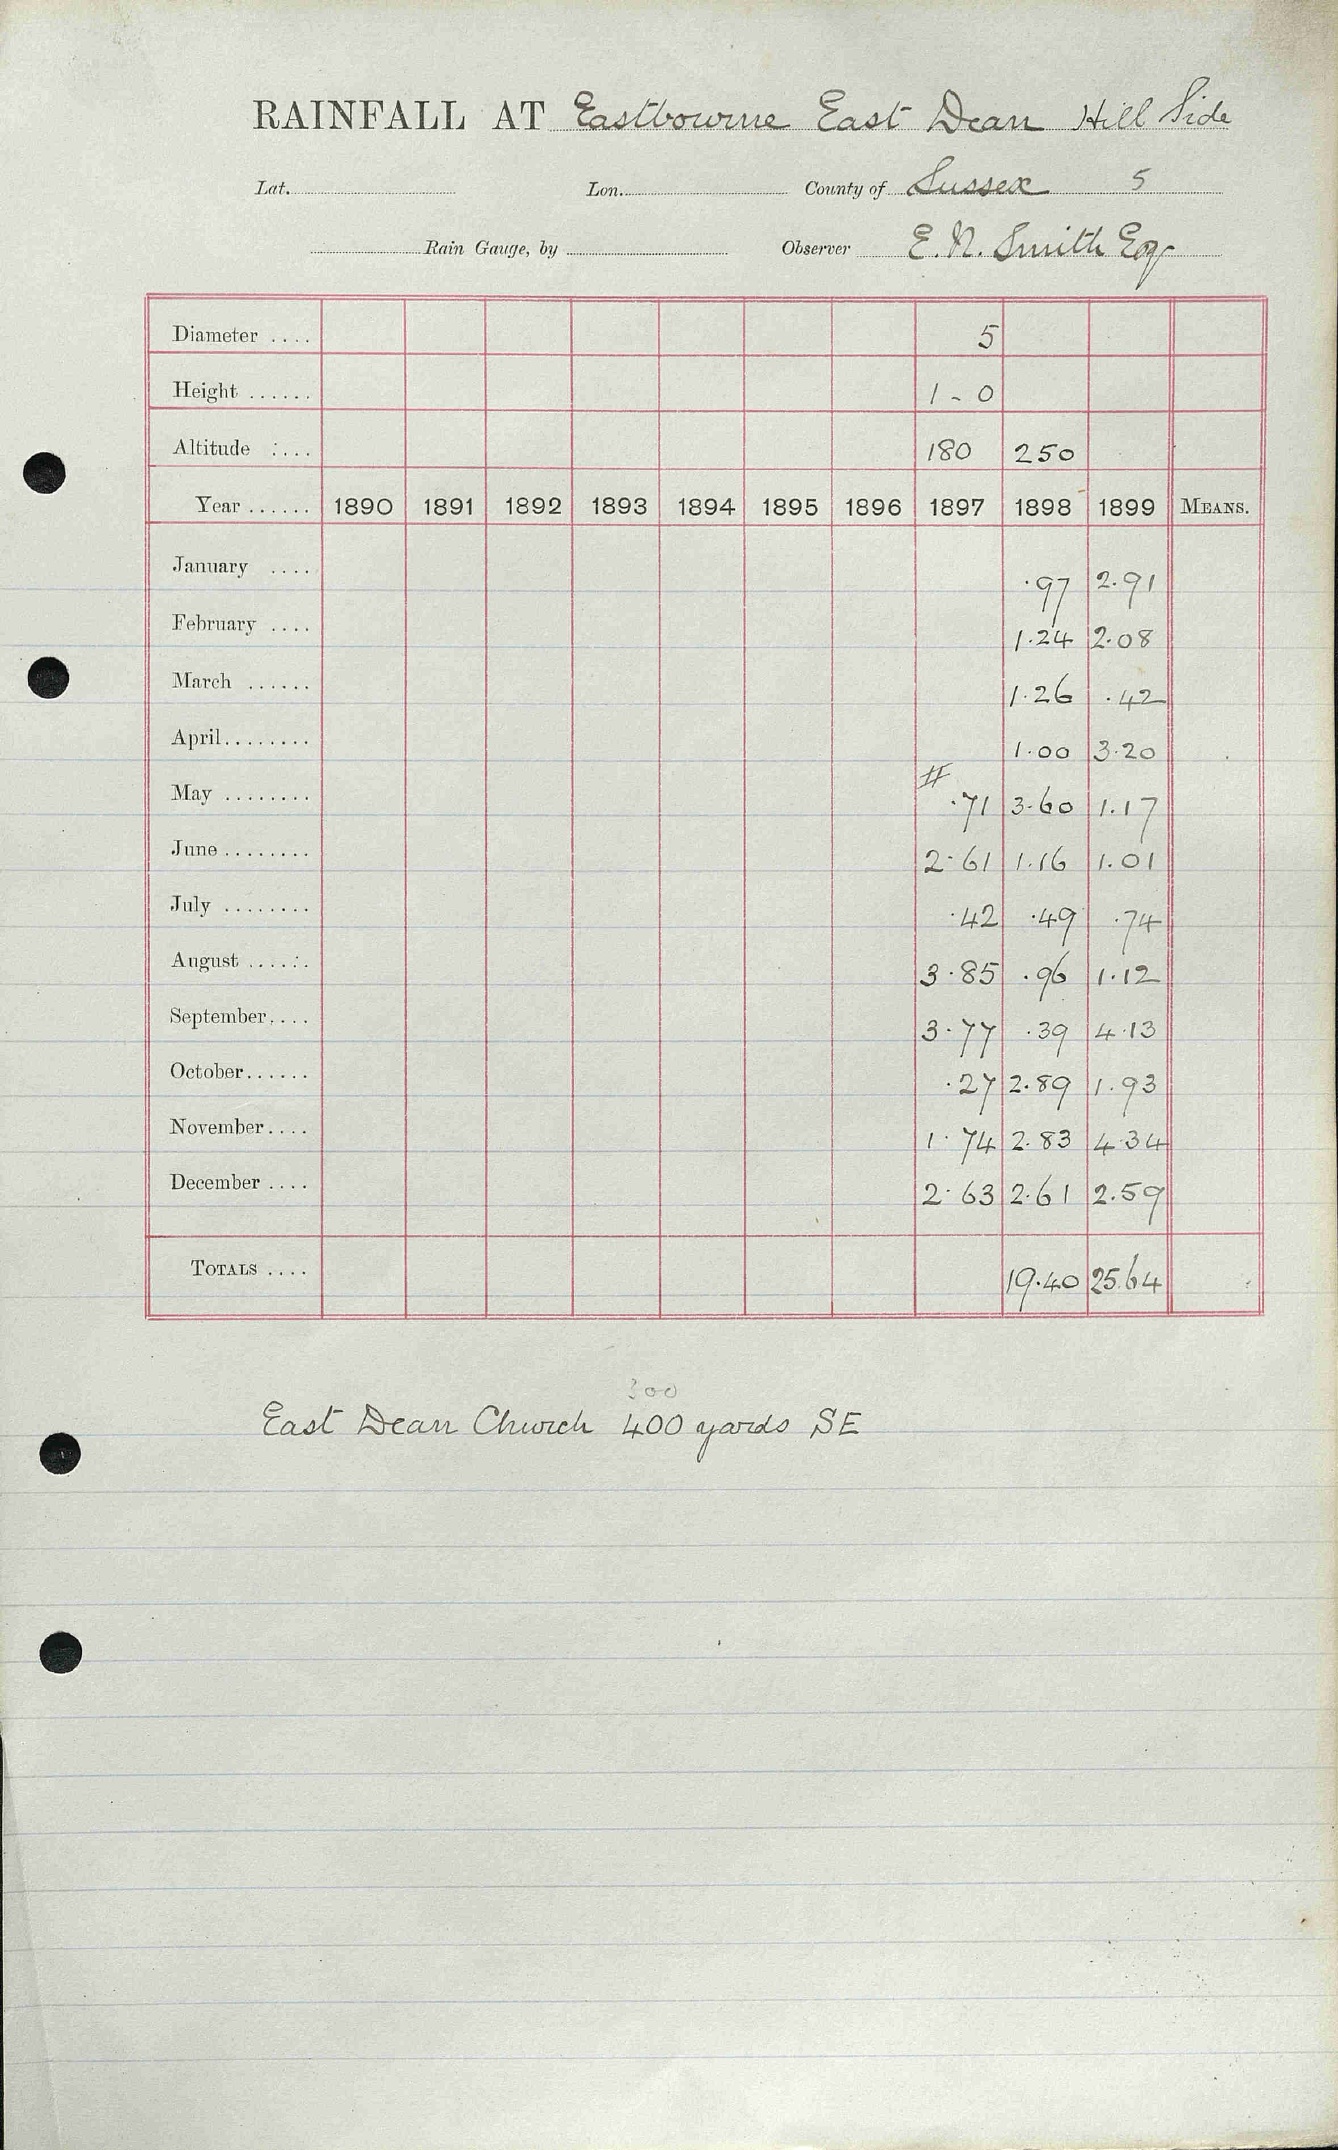 RAINFALL AT Eastbourne East Dean Hill Side
Lat. Lon. County of Sussex 5
Rain Gauge, by Observer E. N. Smith Esq
Diameter .... 5
Height ...... 1 - 0
Altitude .... 180 250
Year ...... 1890 1891 1892 1893 1894 1895 1896 1897 1898 1899 MEANS.
January .... .97 2.91
February .... 1.24 2.08
March ...... 1.26 .42
April........ 1.00 3.20
#
May ........ .71 3.60 1.17
June ........ 2.61 1.16 1.01
July ........ .42 .49 .74
August ...... 3.85 .96 1.12
September.... 3.77 .39 4.13
October...... .27 2.89 1.93
November.... 1.74 2.83 4.34
December .... 2.63 2.61 2.59
TOTALS .... 19.40 25.64
300
East Dean Church 400 yards SE